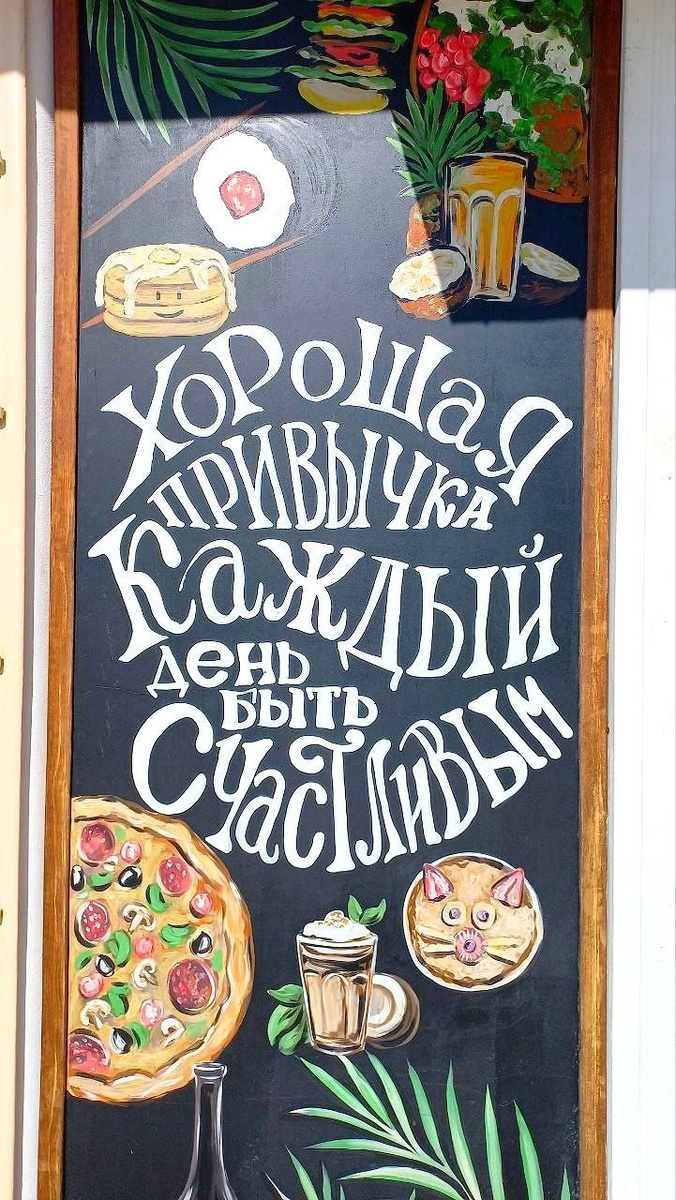 Хорошая
привычка
Каждый
день
быть
Счастливым